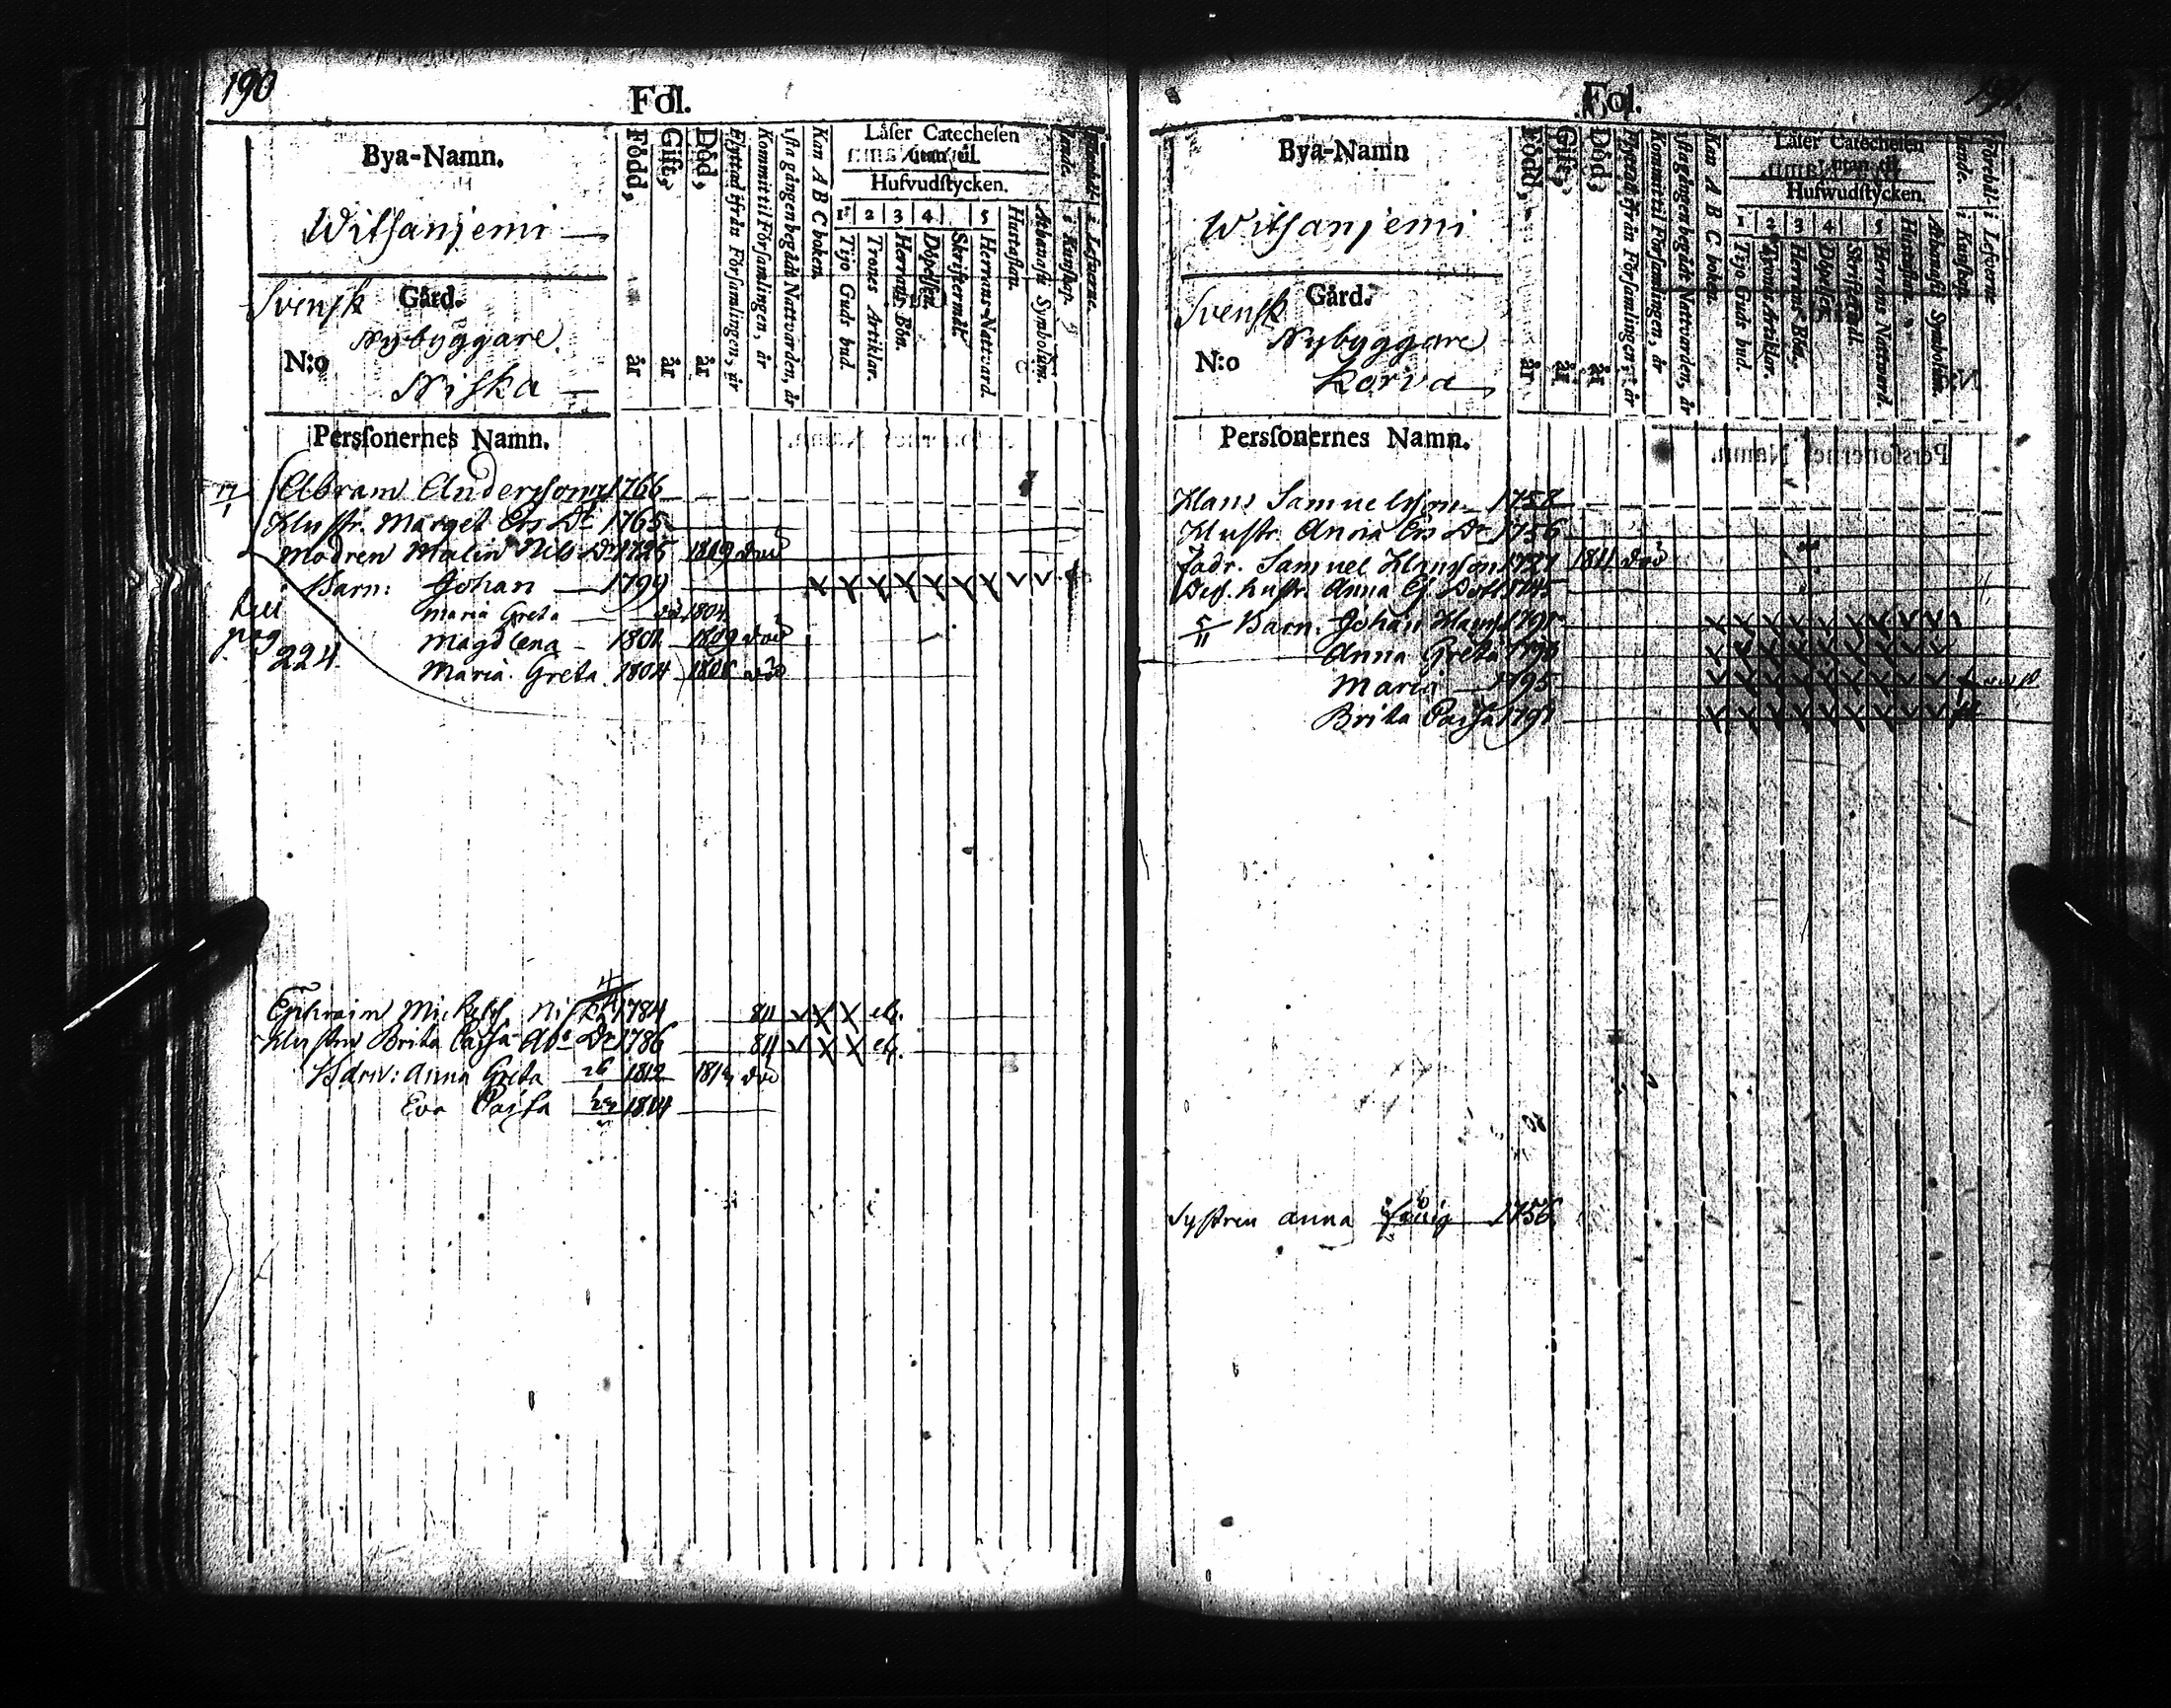 190
Fol.
Bya-Namn.
Witsanjemi
Svensk Gård.
Nybyggare
N:o
Niska
Född, år
Gift, år
Död, år
Flyttad ifrån Församlingen, år
Kommit til Församlingen, år
1sta gången begådt Nattvarden, år
Kan A B C boken.
Låser Catechesen
utan til.
Hufvudstycken.
1 2 3 4 5
Tijo Guds bud.
Trones Artiklar.
Herrans Bön.
Döpelsen.
Skriftermål.
Herrans Nattvard.
Hustaflan.
Athanasii Symbolum.
i Kunskap.
i Lefverne.
Persfonernes Namn.
Abram Andersson 1766
Hustr. Marget Ers Dr 1765
Modren Malin Nils Dr 1725 1809 död
Barn: Johan 1799
Maria Greta 1804
Magdlena 1801 1809 död
Maria Greta 1804 1806 död
pag
224
Ephraim Mickelss. 1784 811
Hustru Brita Caisa Abr Dr 1786 811
Barn: Anna Greta 26 1812 1814 död
Eva Caisa 1814
Fol.
191.
Bya-Namn
Witsanjemi
Svensk Gård.
Nybyggare
N:o
Korva
Född, år
Gift, år
Död, år
Flyttad ifrån Församlingen, år
Kommit til Församlingen, år
1sta gången begådt Nattvarden, år
Kan A B C boken.
Låser Catechesen
utan til.
Hufwudstycken.
1 2 3 4 5
Tijo Guds bud.
Trones Artiklar.
Herrans Bön.
Döpelsen.
Skriftermål.
Herrans Nattward.
Hustaflan.
Athanasii Symbolum.
i Kunskap.
i Lefverne
Persfonernes Namn.
Hans Samuelsson 1758
Hustr. Anna Ers Dr 1756
Fadr. Samuel Hansson 1727 1811 död
Des. hustr. Anna
Barn. Johan Hans 1791
Anna Greta 1793
Maria 1795
Brita Caisa 1797
Systren Anna 1756